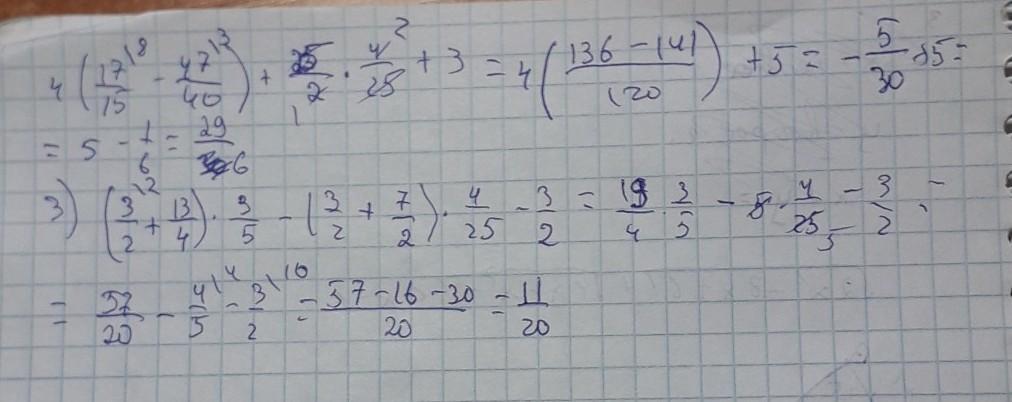 4 (17\8/15 - 47\3/40) + 25/2 · 4/25 + 3 = 4 (136 - 141/120) + 5 = - 5/30 + 5 =
= 5 - 1/6 = 29/6
3) (3\2/2 + 13/4) · 3/5 - (3/2 + 7/2) · 4/25 - 3/2 = 19/4 · 3/5 - 5 · 4/25 - 3/2 =
= 57/20 - 4\4/5 - 3\10/2 = 57 - 16 - 30/20 = 11/20